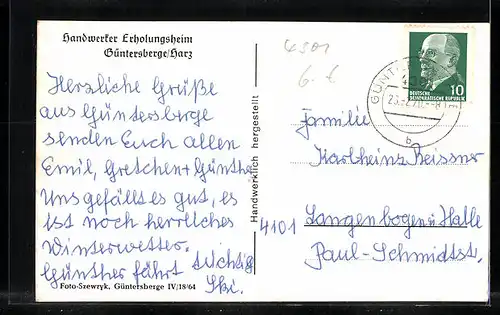 Handwerker Erholungsheim
Güntersberge/Harz
4301
6.€
10
DEUTSCHE
DEMOKRATISCHE REPUBLIK
Herzliche Grüße
aus Güntersberge
senden Euch allen
Emil, Gretchen + Günther
Uns gefällt es gut, es
ist noch herrliches
Winterwetter.
Günther fährt tüchtig
Ski.
Foto-Szewryk, Güntersberge IV/18/64
Handwerklich hergestellt
Familie
Karlheinz Reissner
4101 Langenbogen ü/Halle
Paul-Schmidtst.